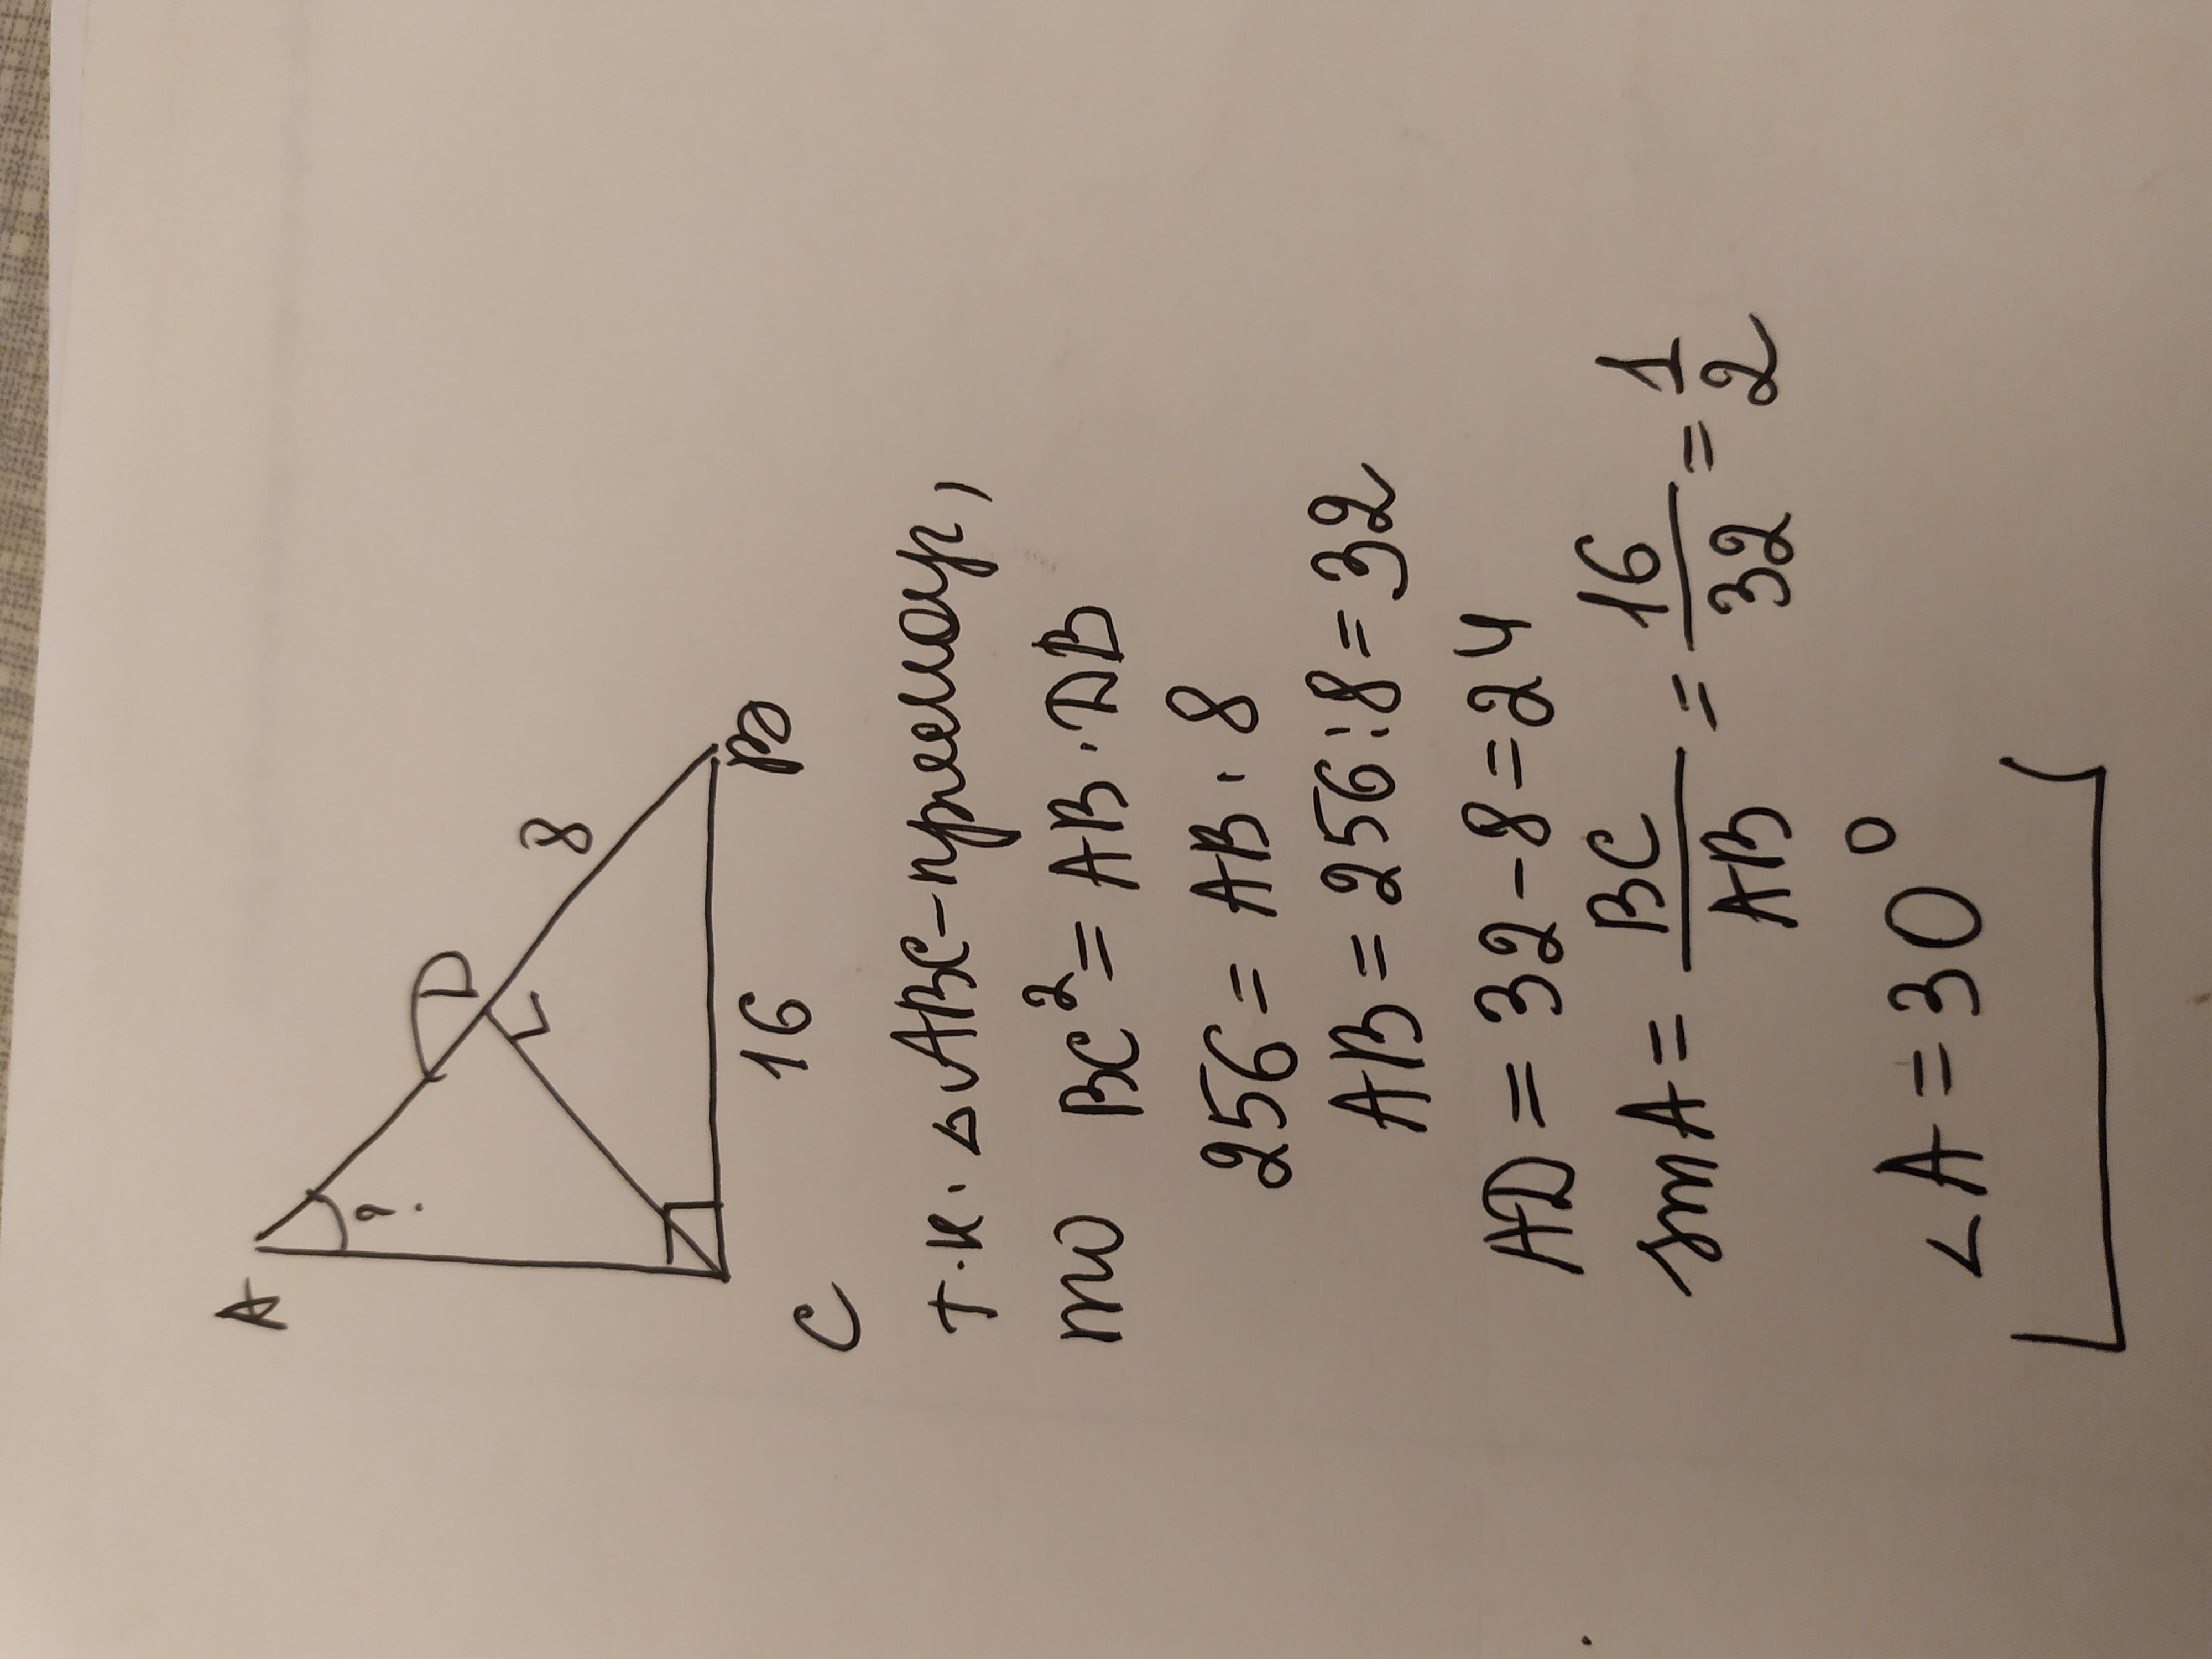 A
?
D
8
C
16
B
т.к. △ABC-прямоуг,
то BC²= AB·DB
256= AB·8
AB= 256:8=32
AD= 32-8=24
sin A = BC/AB = 16/32 = 1/2
∠A=30°